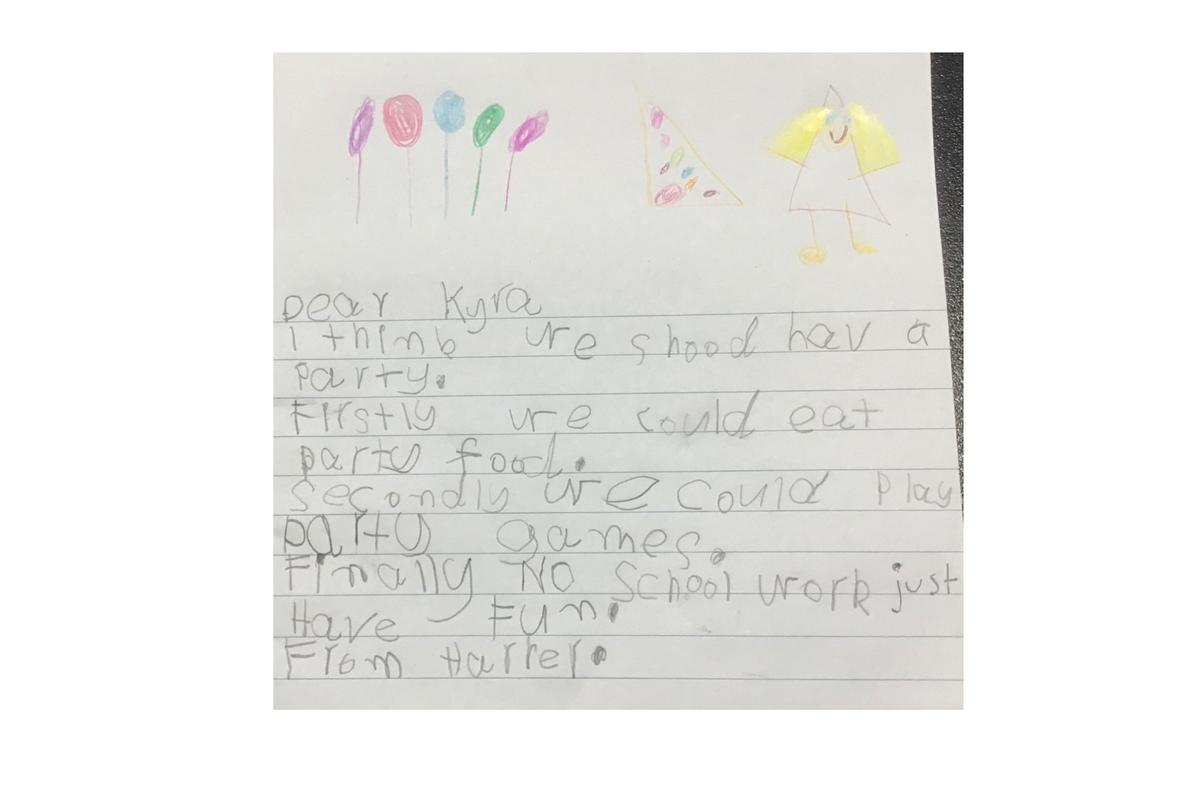 Dear Kyra
I think we shood hav a
party.
Firstly we could eat
party food.
Secondly we could play
party games.
Finally No School work just
Have Fun.
From Harper.